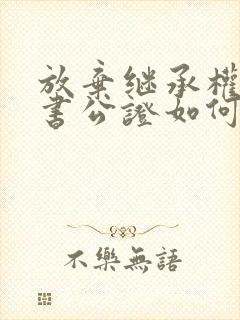 放棄继承權
書公證如何
不樂無語